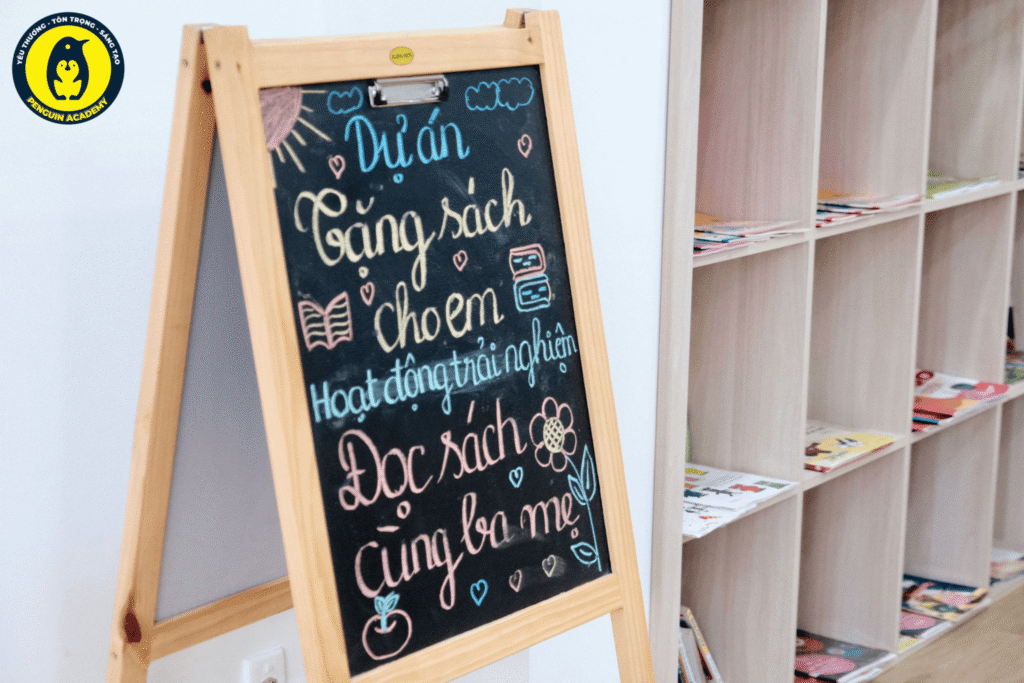 YÊU THƯƠNG - TÔN TRỌNG - SÁNG TẠO
PENGUIN ACADEMY
Dự án
Tặng sách
cho em
Hoạt động trải nghiệm
Đọc sách
cùng ba mẹ